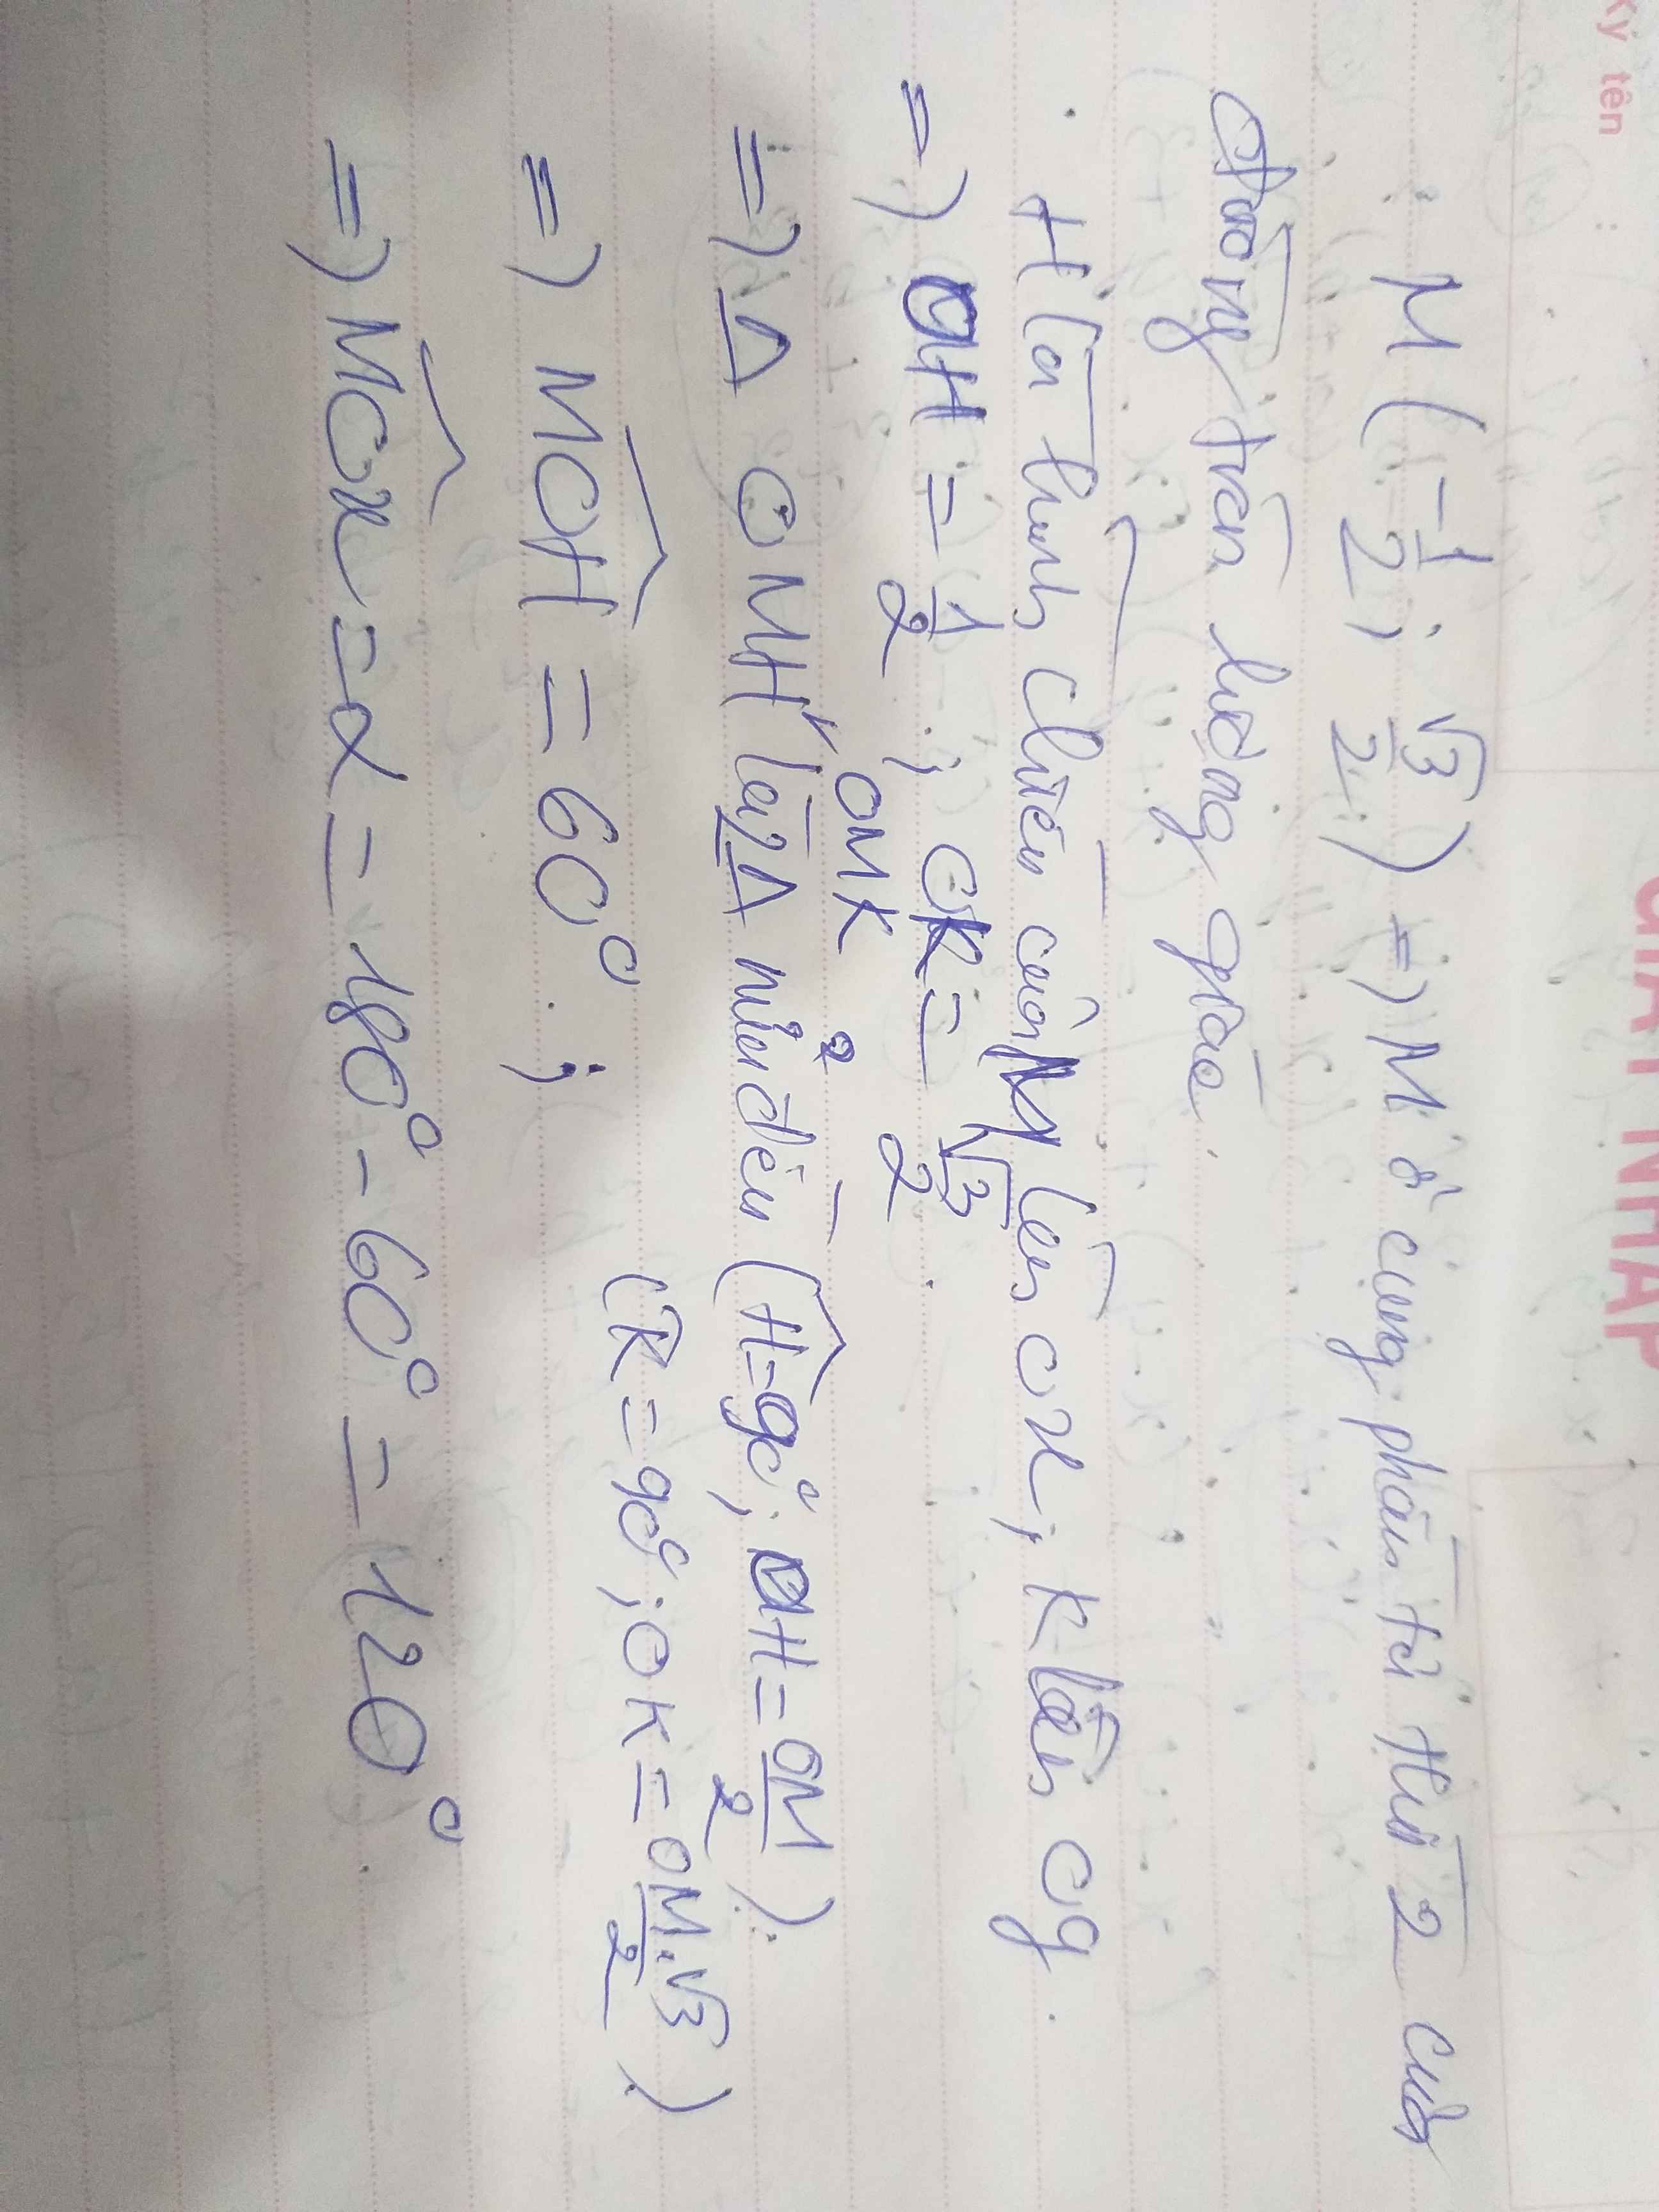 Ký tên
GIẤY NHÁP
: M (-1/2; √3/2) => M ở cung phần tư thứ 2 của
đường tròn lượng giác.
. H là hình chiếu của M lên ox, K lên oy.
=> OH = 1/2 ; OK = √3/2
OMK
=> Δ OMH là 2 Δ nửa đều (H = 90°; OH = OM/2).
(K = 90°; OK = OM.√3/2)
=> MOH = 60° ;
=> MOx = α = 180° - 60° = 120°